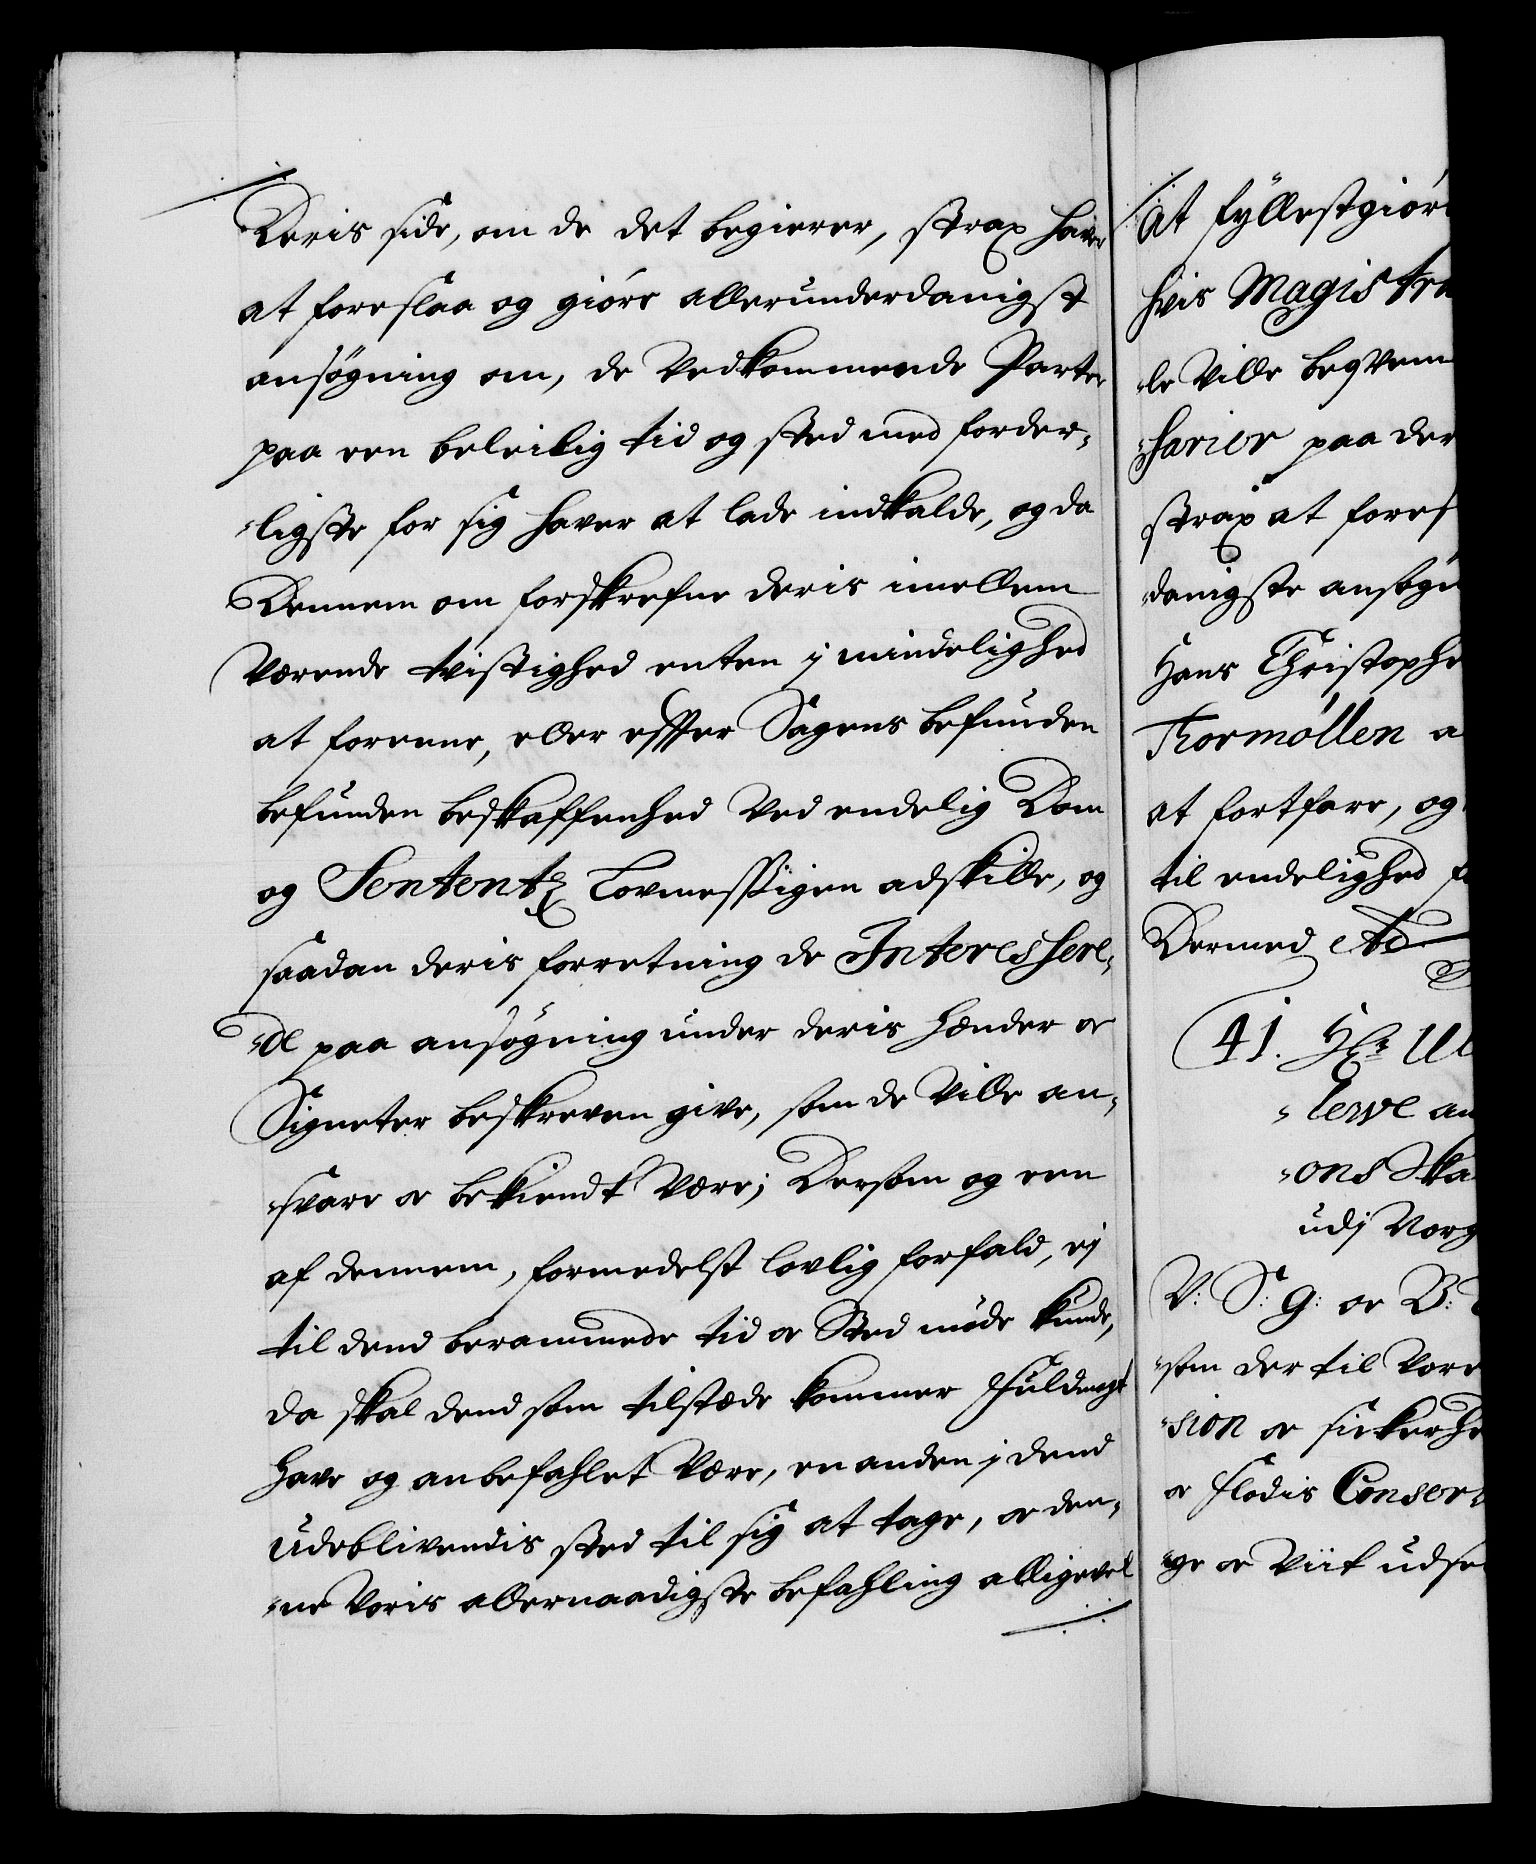 Deris side, om de det begierer, strax haver
at foreslaa og giøre allerunderdanigst
ansøgning om, de Vedkommende Parter
paa een beleilig tid og sted med forder-
-ligste for sig haver at lade indkalde, og da
Dennem om forskrefne deris imellem
Værende tvistighed enten j mindelighed
at foreene, eller effter Sagens befunden
befunden beskaffenhed Ved endelig Dom
og Sententz Lovmessigen adskille, og
saadan deris forretning de Interessere-
-de paa ansøgning under deris hænder oc
Signeter beskreven give, som de Ville an-
-svare oc bekiendt Være; Dersom og een
af dennem, formedelst lovlig forfald, ej
til dend berammede tid oc Sted møde kunde,
da skal dend som tilstæde kommer Fuldmagt
have og anbefahlet Være, en anden j dend
udeblivendis sted til sig at tage, oc den-
-ne Voris allernaadigste befahling alligevel
At fyllestgiøre
hvis Magistra
-le Ville beqvem
-sarier paa der
strax at fores
-danigste ansøgn
Hans Christophe
Kormøllen a
at fortfare, og
til endelighed
Dermed etc
41. Hr Ul
-lewe an
-ons Ska
udj Norg
V: S: G: oc B:
som der til Vore
-sion oc sickerhe
oc Flodis Conser
-ge oc Viit udse